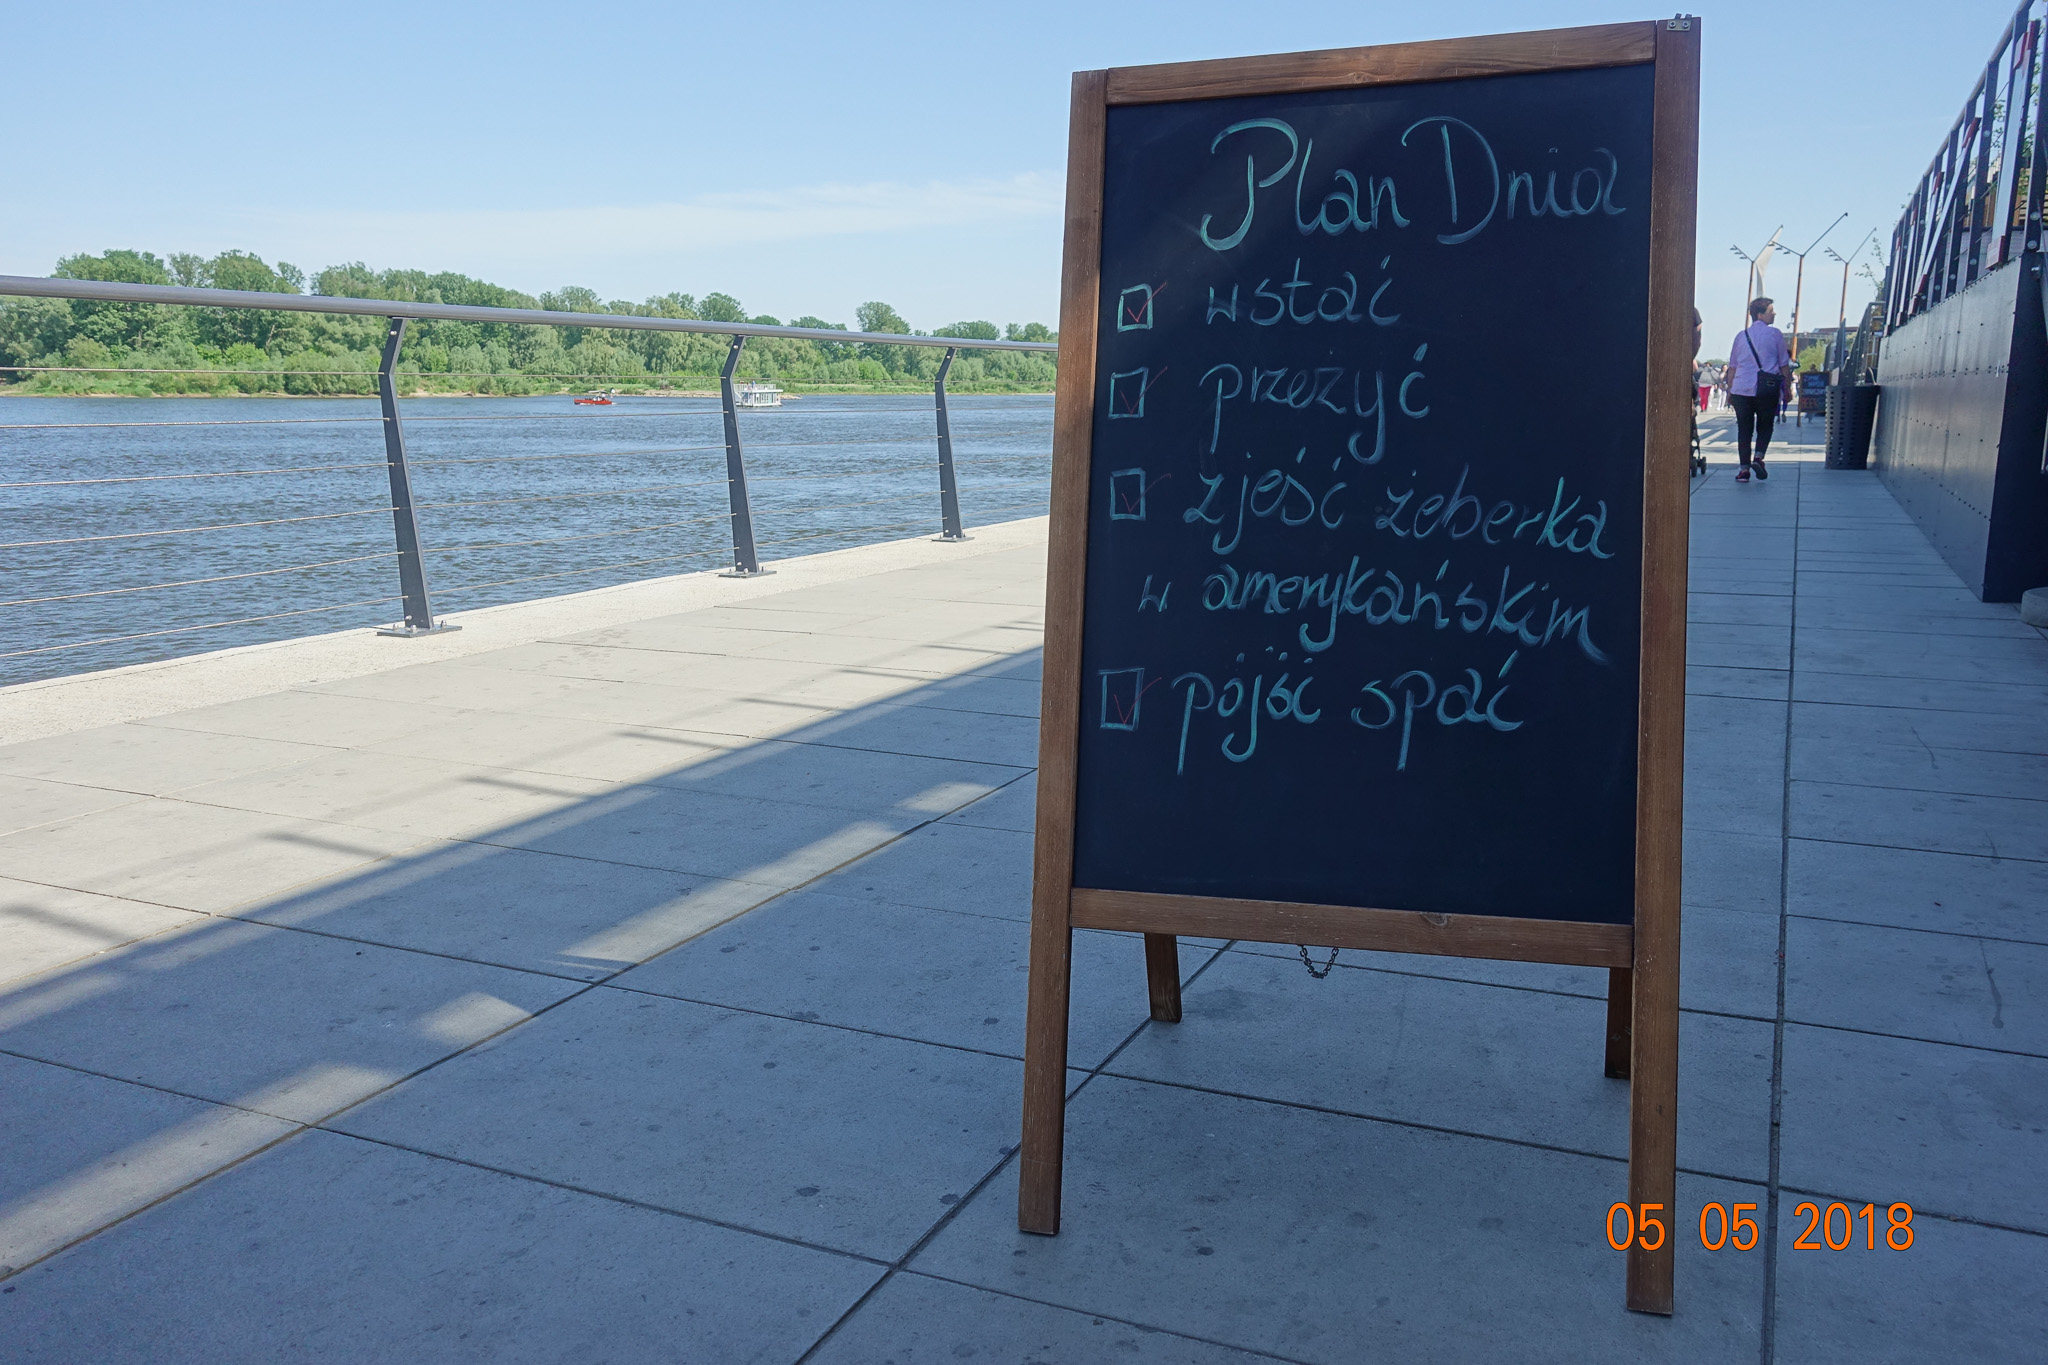 Plan Dnia
wstać
przeżyć
zjeść żeberka
w amerykańskim
pójść spać
05 05 2018